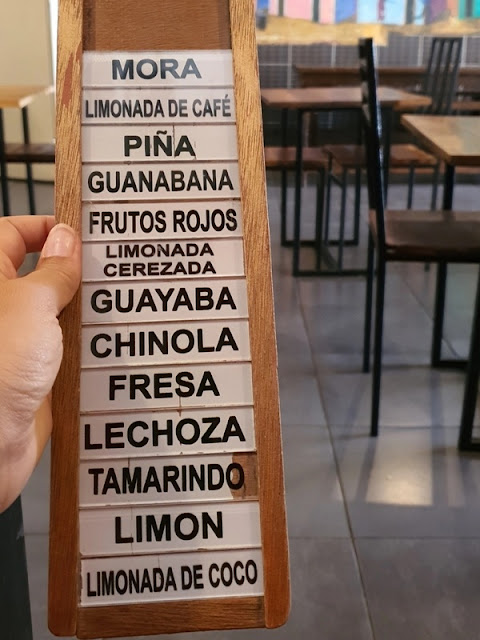 MORA
LIMONADA DE CAFÉ
PIÑA
GUANABANA
FRUTOS ROJOS
LIMONADA
CEREZADA
GUAYABA
CHINOLA
FRESA
LECHOZA
TAMARINDO
LIMON
LIMONADA DE COCO